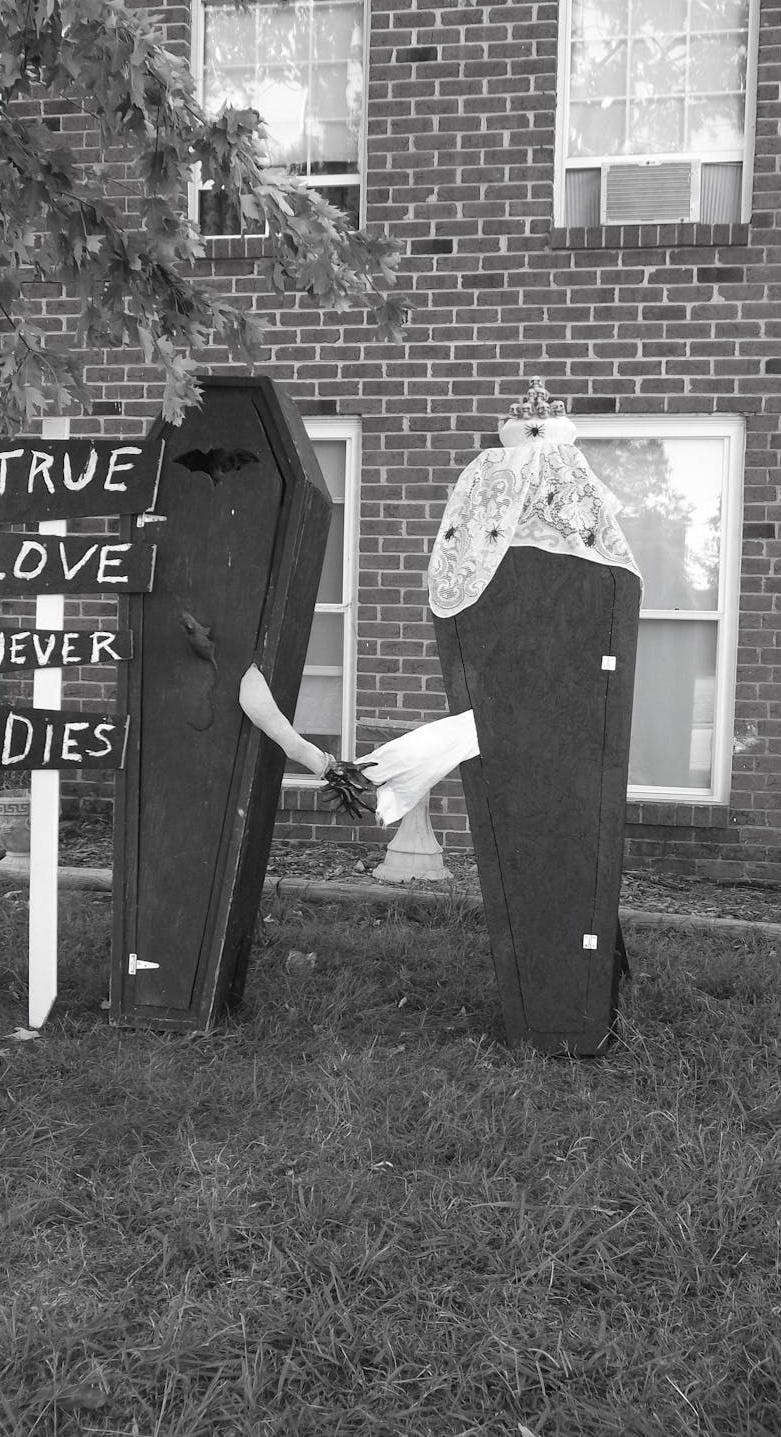 TRUE
LOVE
NEVER
DIES